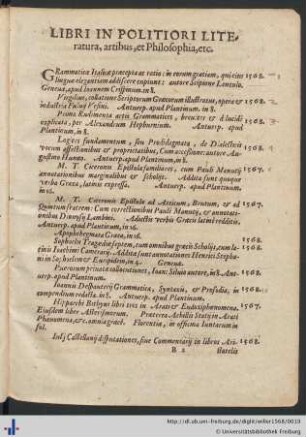 LIBRI IN POLITIORI LITE-
ratura, artibus, et Philosophia, etc.
GRammatica Italicæ præcepta ac ratio: in eorum gratiam, qui eius 1568.
linguæ elegantiam addiscere cupiunt: autore Scipione Lentulo.
Geneuæ, apud Ioannem Crispinum. in 8.
Virgilius, collatione Scriptorum Græcorum illustratus, opera et 1568.
industria Fuluij Vrsini. Antuerp. apud Plantinum. in 8.
Prima Rudimenta artis Grammatices, breuiter & dilucidè 1568.
explicata, per Alexandrum Hepburnium. Antuerp. apud
Plantinum, in 8.
Logices fundamentum, seu Prolidegmata, de Dialecticis
verborum affectionibus & proprietatibus, Commentatio: autore Au-
gustino Hunæo. Antuerp. apud Plantinum, in 8.
M. T. Ciceronis Epistolæ familiares, cum Pauli Manutij 1567.
annotationibus marginalibus & scholijs. Addita sunt quoque
verba Græca, latinè expressa. Antuerp. apud Plantinum.
in 16.
M. T. Ciceronis Epistolæ ad Atticum, Brutum, & ad 1567.
Quintum fratrem: Cum correctionibus Pauli Manutij, & annotati-
onibus Dionysij Lambini. Adiectis verbis Græcis latinè redditis.
Antuerp. apud Plantinum, in 16.
Apophthegmata Græca, in 16. 1568.
Sophoclis Tragœdiæ septem, cum omnibus græcis Scholijs, cum la- 1568.
tinis Ioachimi Camerarij. Addita sunt annotationes Henrici Stepha-
ni in Sophoclem & Euripidem, in 4. Geneuæ.
Puerorum priuatæ collocutiones, Ioan. Saluio autore, in 8. Ant-
uerp. apud Plantinum.
Ioannis Despauterij Grammatica, Syntaxis, & Prosodia, in 1568.
compendium redacta. in 8. Antuerp. apud Plantinum.
Hipparchi Bithyni libri tres in Arati & Eudoxi phænomena. 1567.
Eiusdem liber Asterismorum. Præterea Achillis Statij in Arati
Phænomena, &c. omnia græcè. Florentiæ, in officina Iuntarum in
fol.
Iulij Castellanij disputationes, siue Commentarij in libros Ari- 1568.
B 2 stotelis
http://dl.ub.uni-freiburg.de/diglit/willer1568/0019
Universitätsbibliothek Freiburg